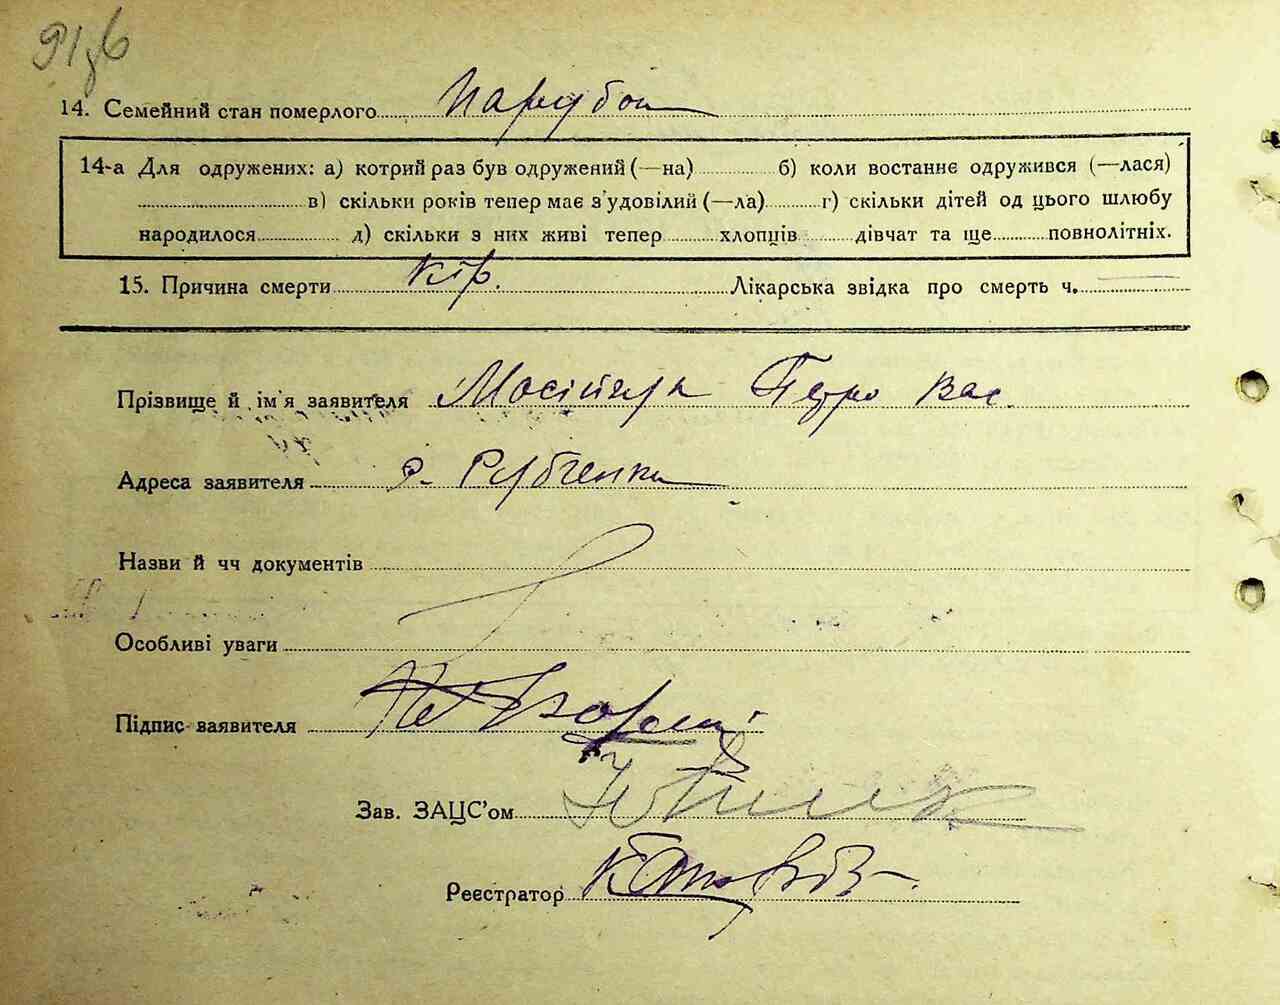 14. Семейний стан померлого Парубок
14-а Для одружених: а) котрий раз був одружений (—на) б) коли востаннє одружився (—лася)
в) скільки років тепер має з'удовілий (—ла) г) скільки дітей од цього шлюбу
народилося д) скільки з них живі тепер хлопців дівчат та ще повнолітніх.
15. Причина смерти кір. Лікарська звідка про смерть ч.
Прізвище й ім'я заявителя Петро Вас.
Адреса заявителя
Назви й чч документів
Особливі уваги
Підпис заявителя
Зав. ЗАЦС'ом
Реєстратор